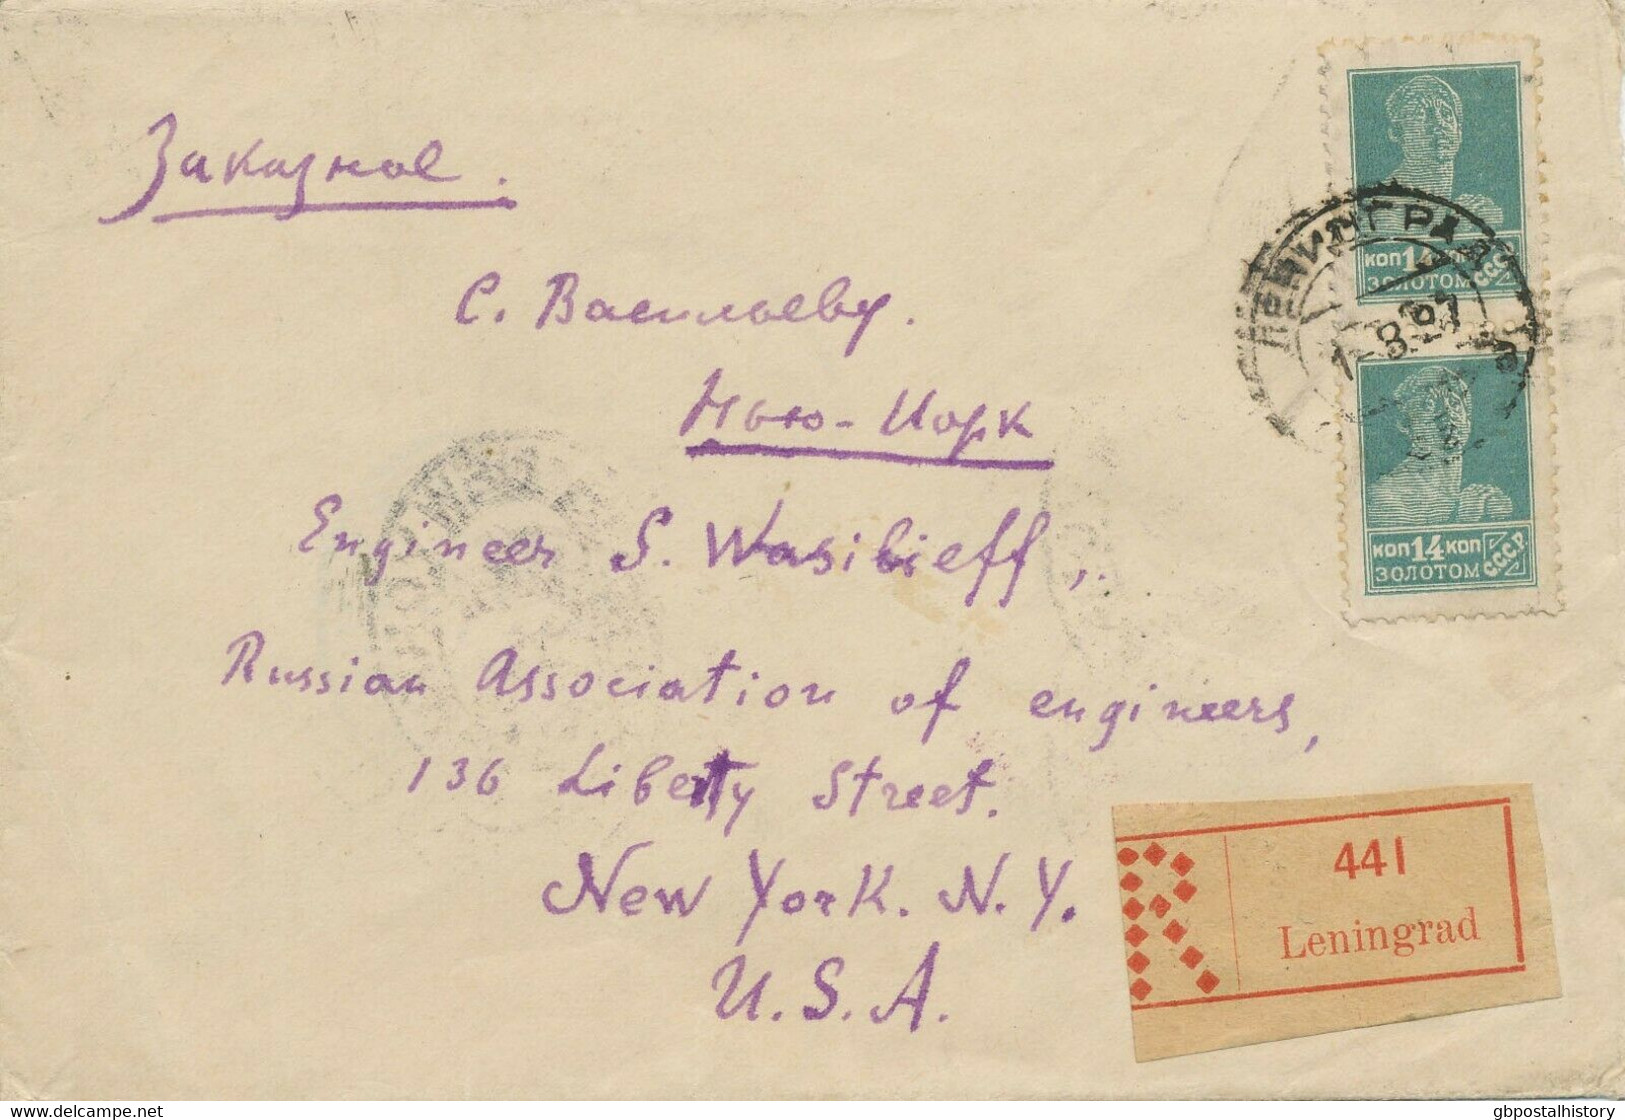 Заказное.
С. Васильеву.
Нью-Иорк
Engineer S. Wasilieff,
Russian Association of engineers,
136 Liberty Street.
New York. N. Y.
U. S. A.
КОП 14 КОП
ЗОЛОТОМ СССР
ЛЕНИНГРАД
КОП 14 КОП
ЗОЛОТОМ С.С.С.Р
R
441
Leningrad
www.delcampe.net
gbpostalhistory